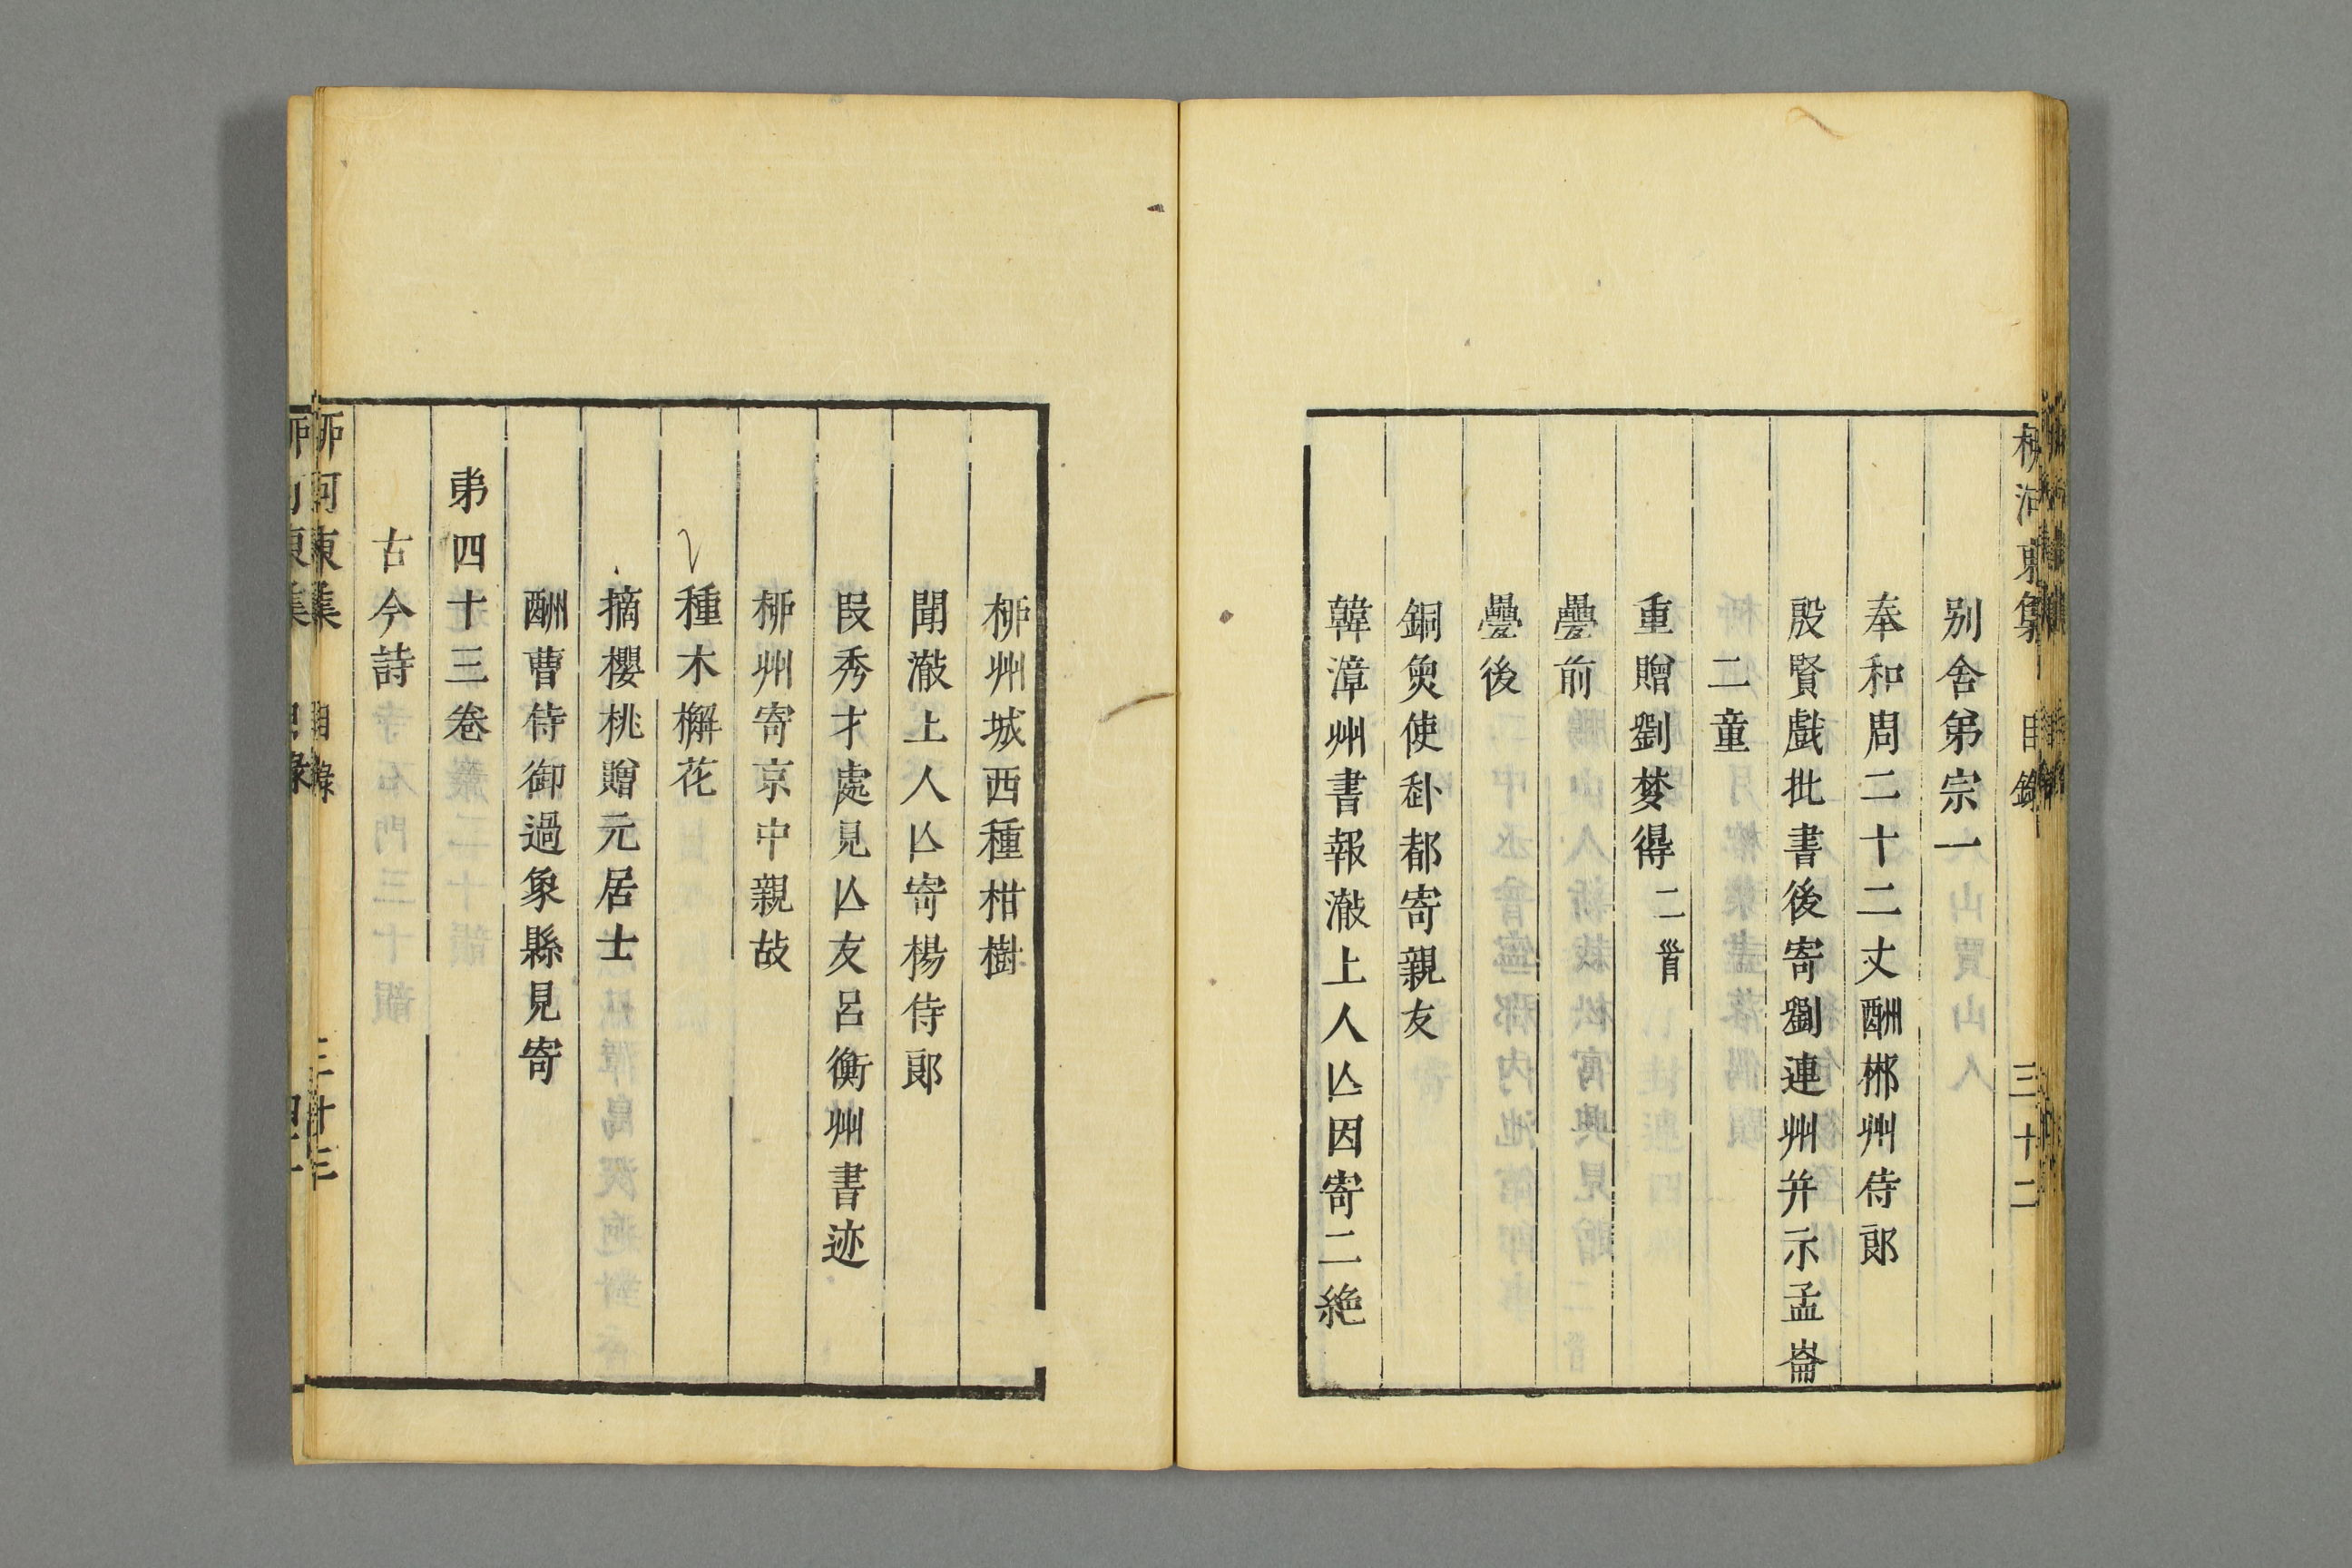 柳河東集 目錄 三十二
別舍弟宗一
奉和周二十二丈酬郴州侍郎
殷賢戲批書後寄劉連州并示孟崙
二童
重贈劉夢得二首
疊前
疊後
銅魚使赴都寄親友
韓漳州書報澈上人亾因寄二絶
柳州城西種柑樹
聞澈上人亾寄楊侍郎
段秀才處見亾友呂衡州書迹
柳州寄京中親故
種木檞花
摘櫻桃贈元居士
酬曹侍御過象縣見寄
弟四十三卷
古今詩
柳河東集 目錄 三十三